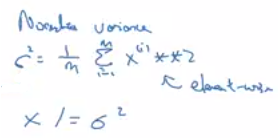 Normalize variance
σ² = 1/m Σ_{i=1}^{m} x^{(i)} ** 2
↖ element-wise
x /= σ²